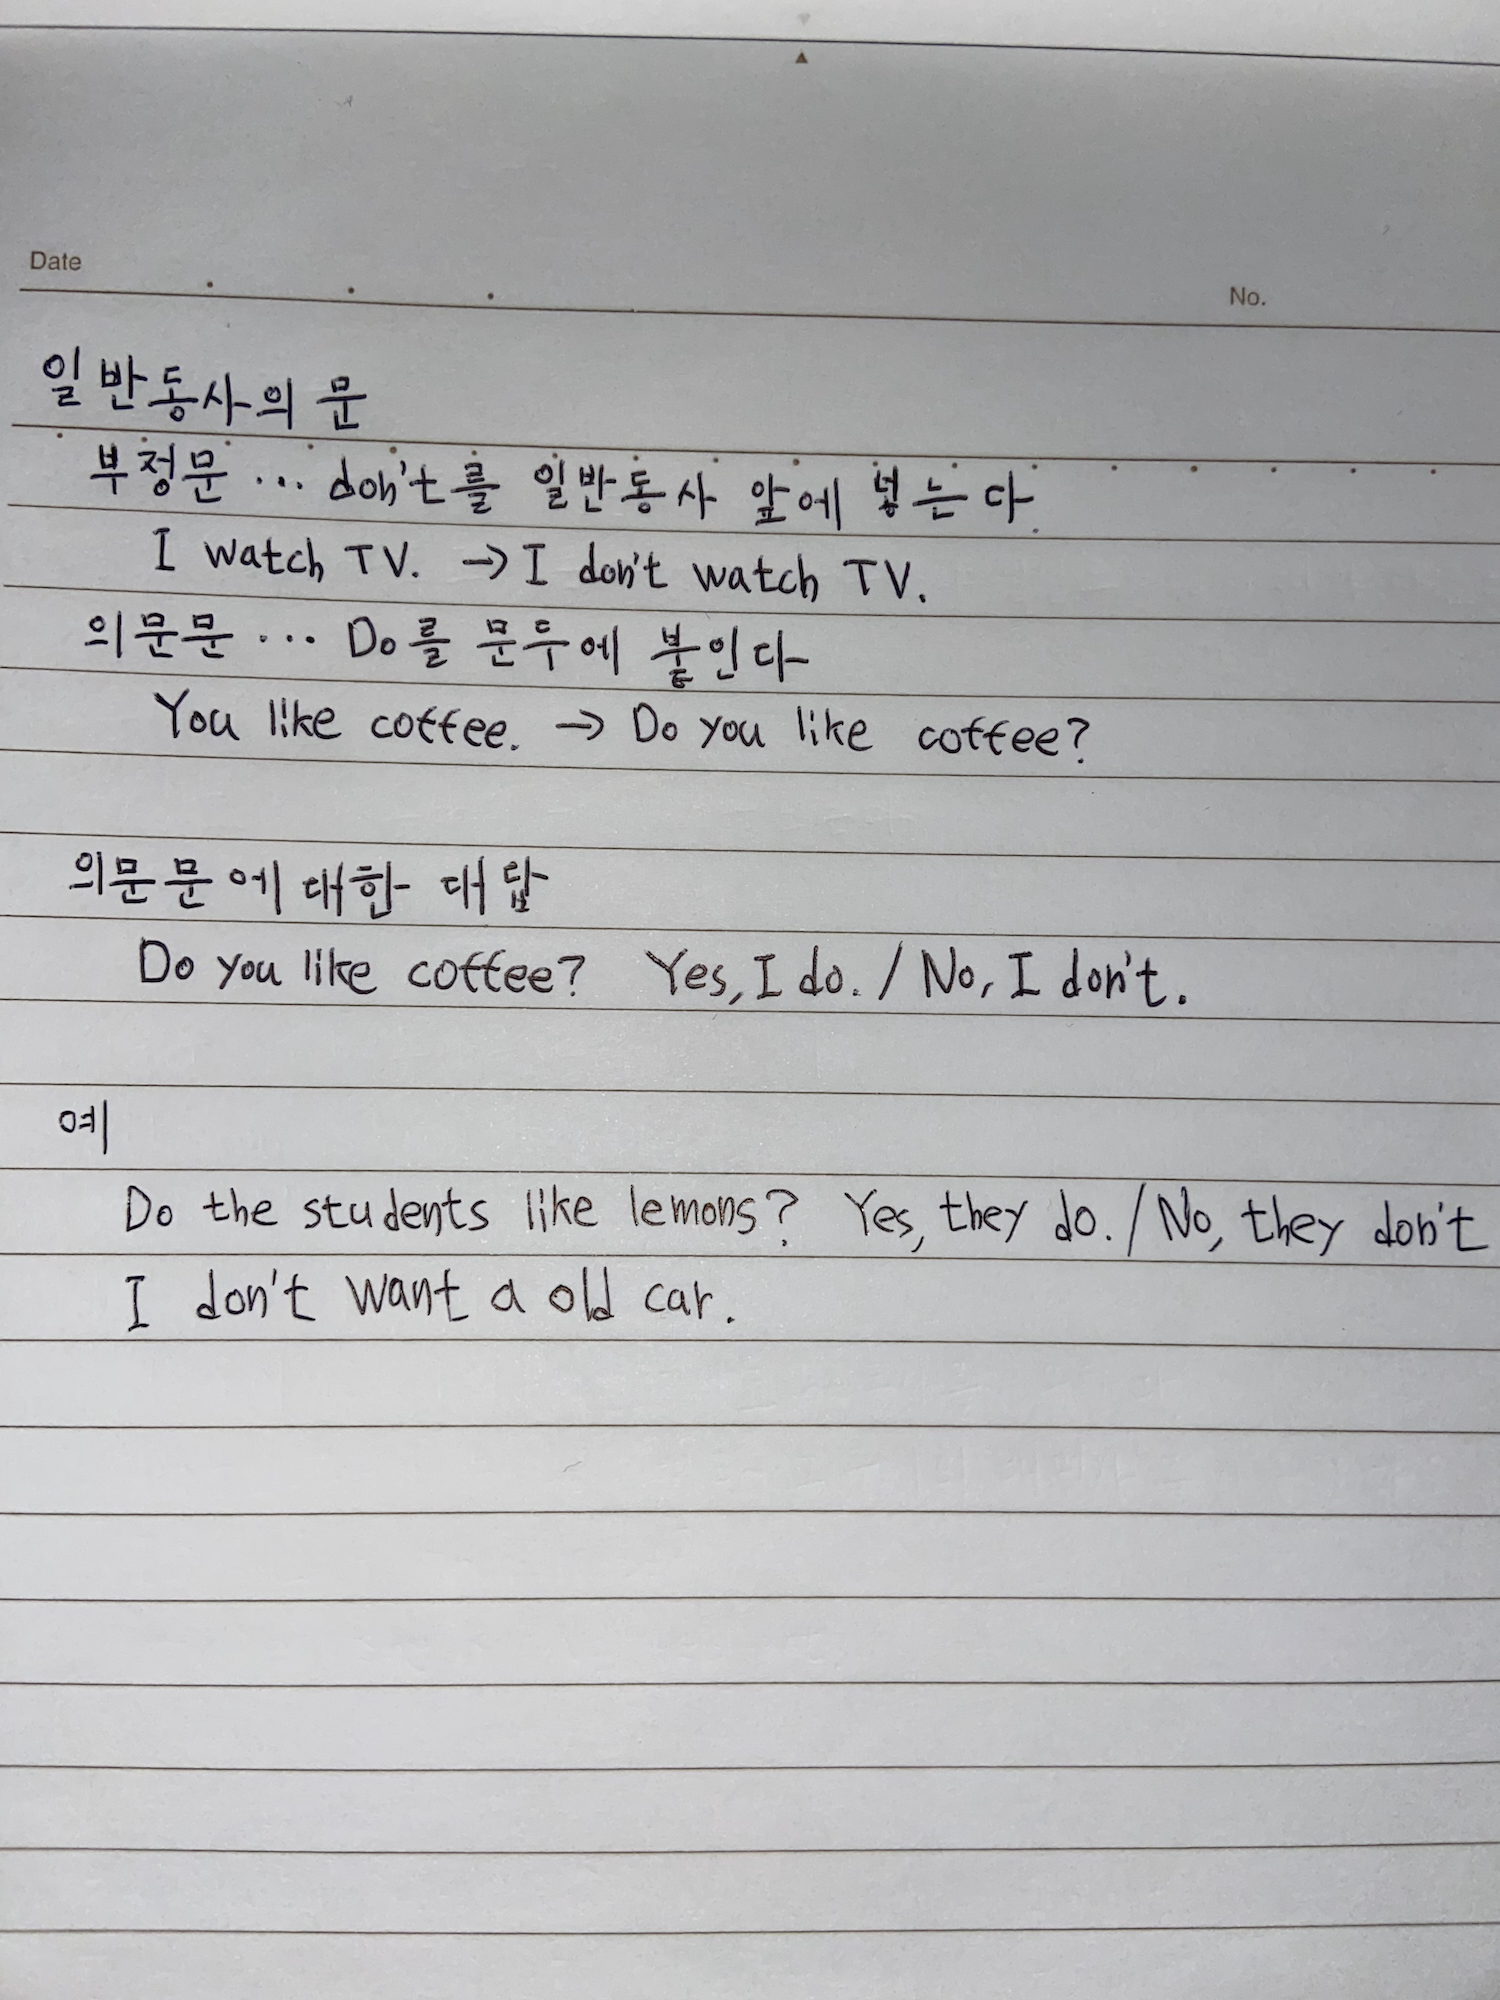 Date
No.
일반동사의 문
부정문 ... don't를 일반동사 앞에 넣는다.
I watch TV. → I don't watch TV.
의문문 ... Do를 문두에 붙인다
You like coffee. → Do you like coffee?
의문문에 대한 대답
Do you like coffee? Yes, I do. / No, I don't.
예
Do the students like lemons? Yes, they do. / No, they don't
I don't want a old car.